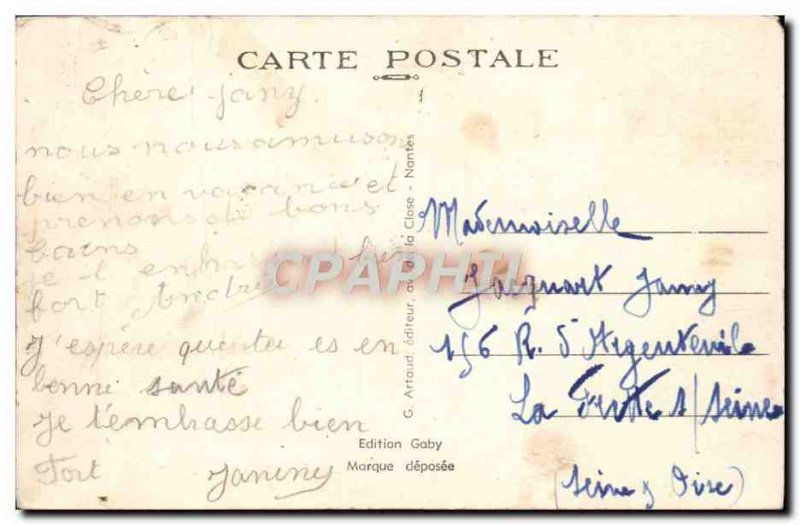 CARTE POSTALE
Chère Jany.
nous nous amusons
bien en vacance et
prenons de bons
bains
je t'embrasse bien
fort André
J'espère que tu es en
bonne santé
Je t'embrasse bien
Fort Janine
G. Artaud, éditeur, av. de la Close - Nantes
Mademoiselle
Jacquart Jany
156 R. d'Argenteuil
La Frette s/Seine
(Seine & Oise)
Edition Gaby
Marque déposée
CPAPHIL